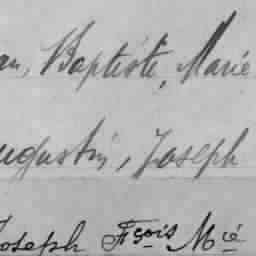 an, Baptiste, Marie
ugustin, Joseph
Joseph Fçois Mie